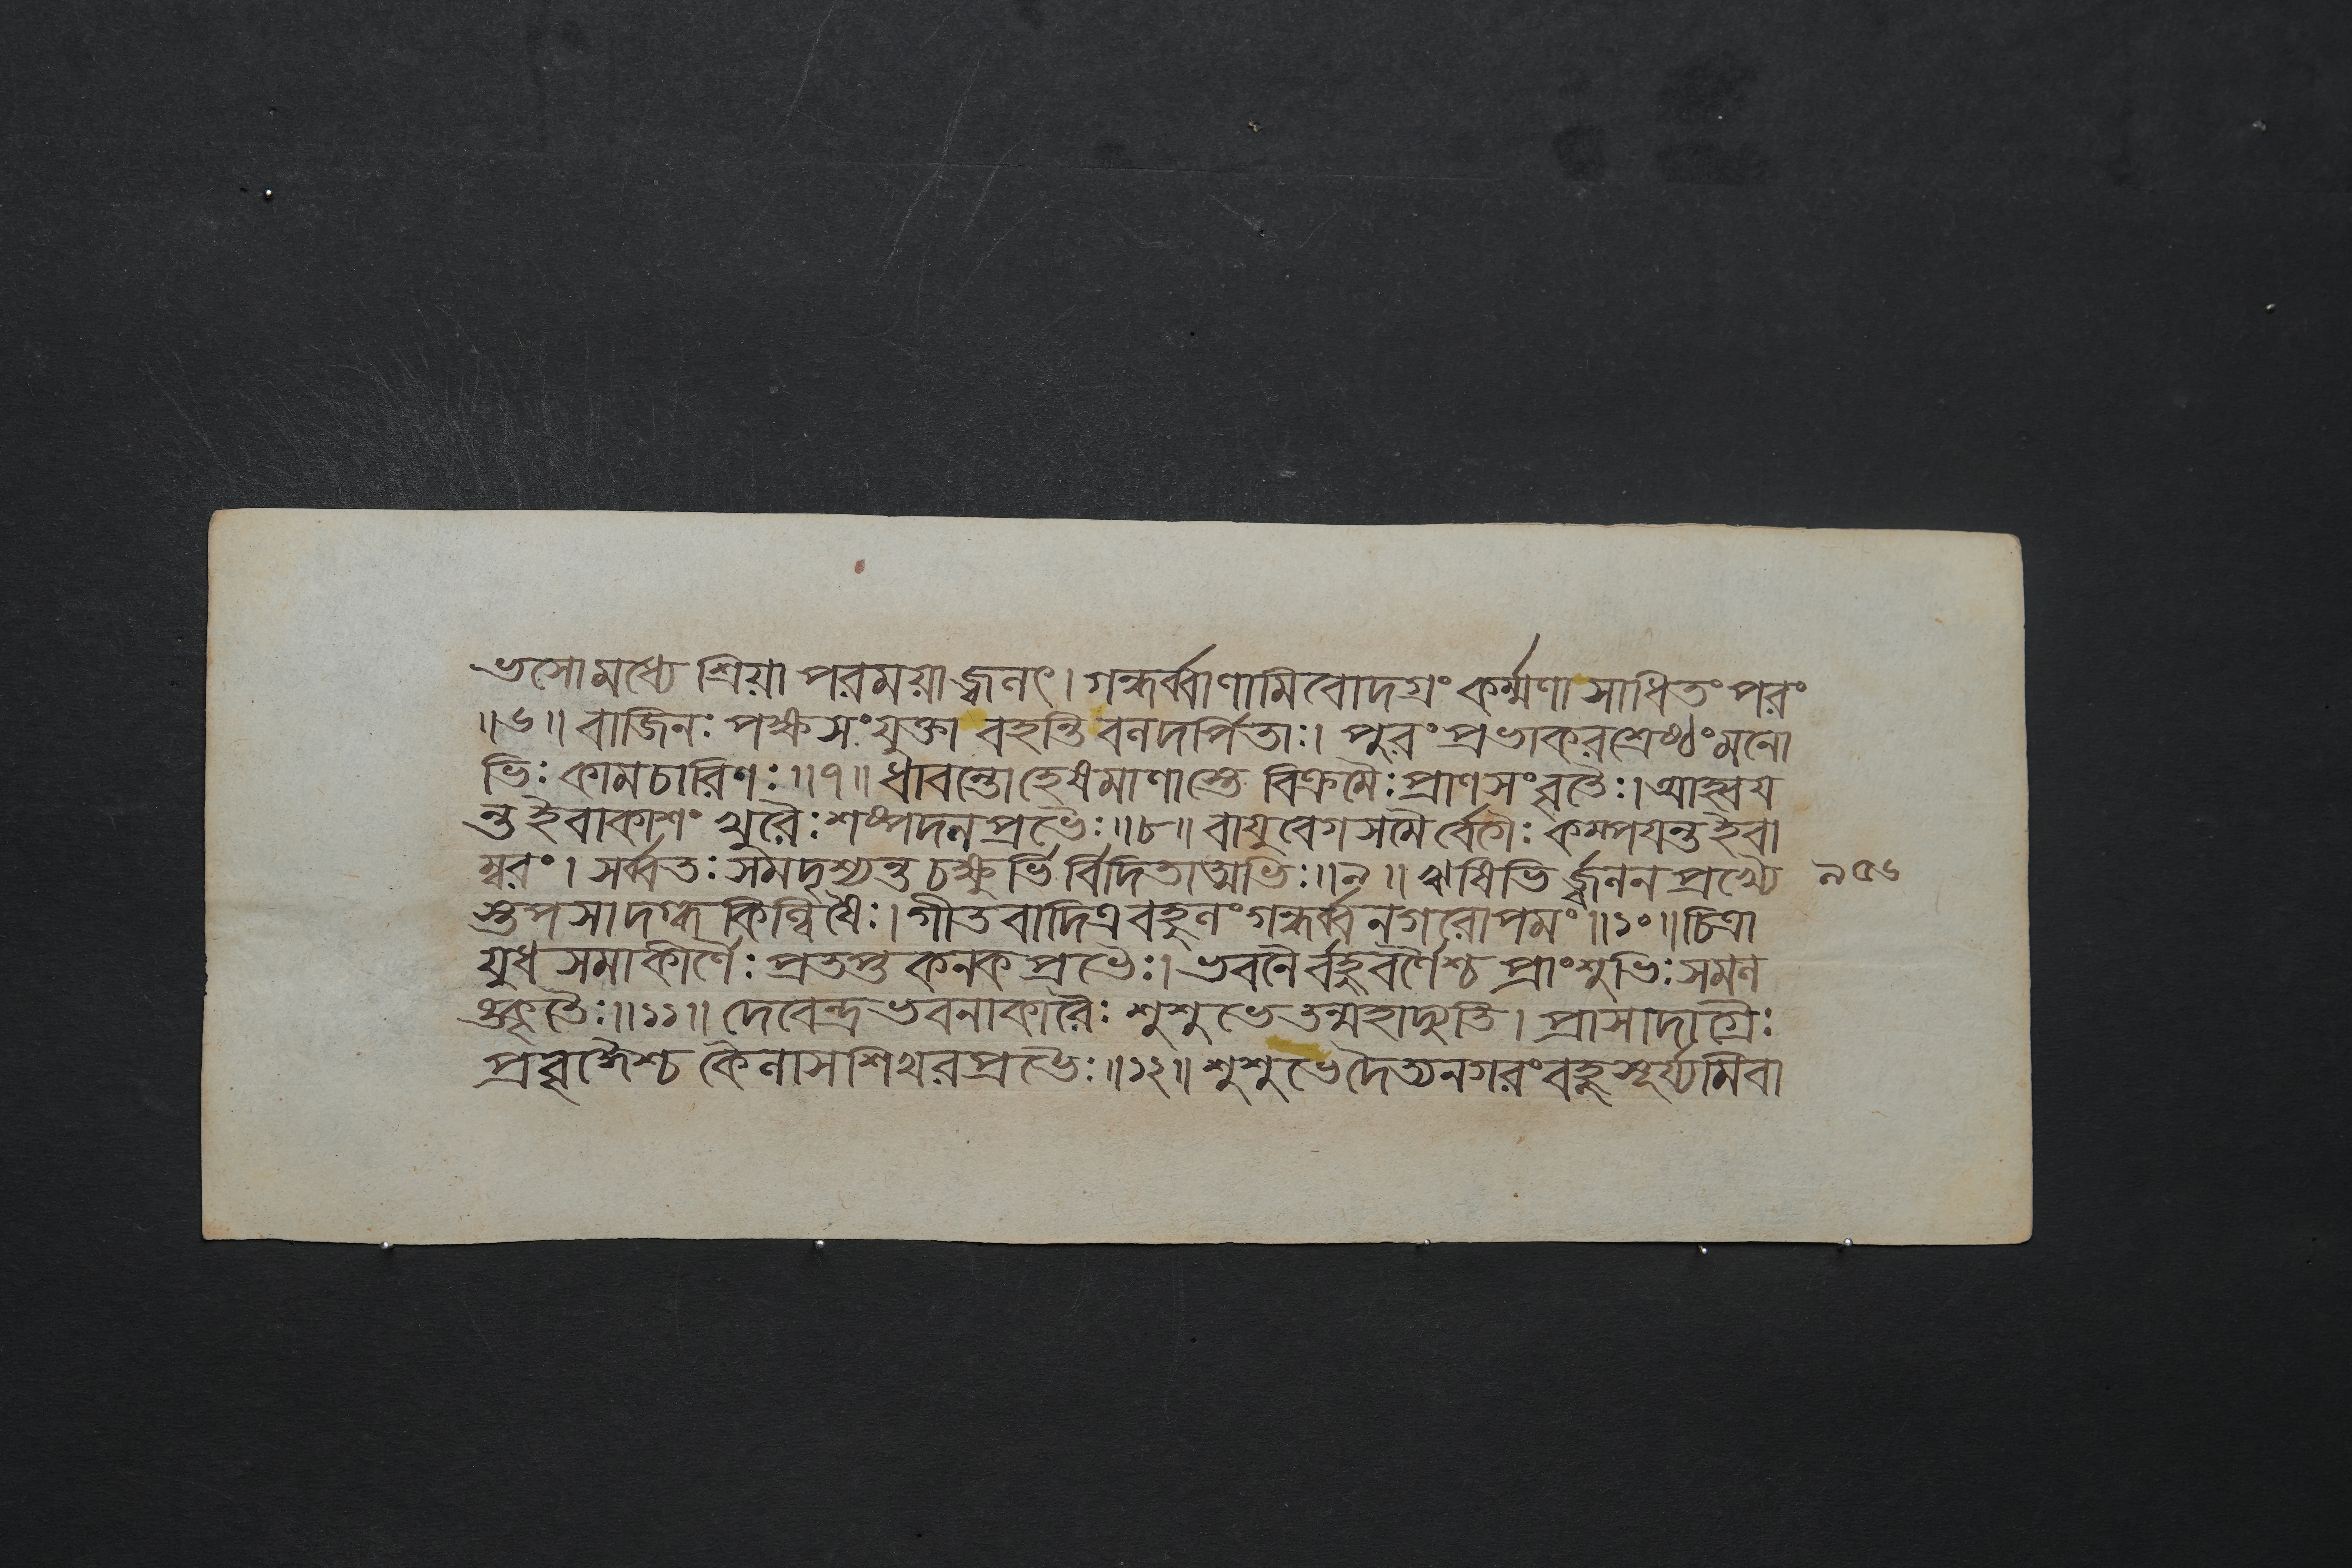 ভসো মধ্যে শ্রিয়া পরময়া জ্বলৎ। গন্ধর্ব্বাণামিবোদগ্রং কর্ম্মণা সাধিতং পরং
॥৬॥ বাজিনঃ পক্ষসংযুক্তা বহন্তি বলদর্পিতাঃ। পুরং প্রভাকরশ্রেষ্ঠং মনো
ভিঃ কামচারিণঃ॥৭॥ ধাবন্তো হেষমাণাস্তে বিক্রমৈঃ প্রাণসংবৃতৈঃ। আহ্বয
ন্ত ইবাকাশং খুরৈঃ শষ্পদলপ্রভৈঃ॥৮॥ বাযুবেগসমৈর্বেগৈঃ কম্পযন্ত ইবা
ম্বরং। সর্ব্বতঃ সমদৃশ্যন্ত চক্ষুর্ভির্বিদিতাত্মভিঃ॥৯॥ ঋষিভির্জ্বলনপ্রখ্যৈ
স্তপসা দগ্ধকিল্বিষৈঃ। গীতবাদিত্রবহুলং গন্ধর্ব্বনগরোপমং॥১০॥ চিত্রা
যুধসমাকীর্ণৈঃ প্রতপ্তকনকপ্রভৈঃ। ভবনৈর্বহুবর্ণৈশ্চ প্রাংশুভিঃ সমল
ঙ্কৃতৈঃ॥১১॥ দেবেন্দ্রভবনাকারৈঃ শুশুভে তন্মহাদ্যুতি। প্রাসাদাগ্রৈঃ
প্রবৃদ্ধৈশ্চ কৈলাসশিখরপ্রভৈঃ॥১২॥ শুশুভে দৈত্যনগরং বহুসূর্য্যমিবা
৯৫৬